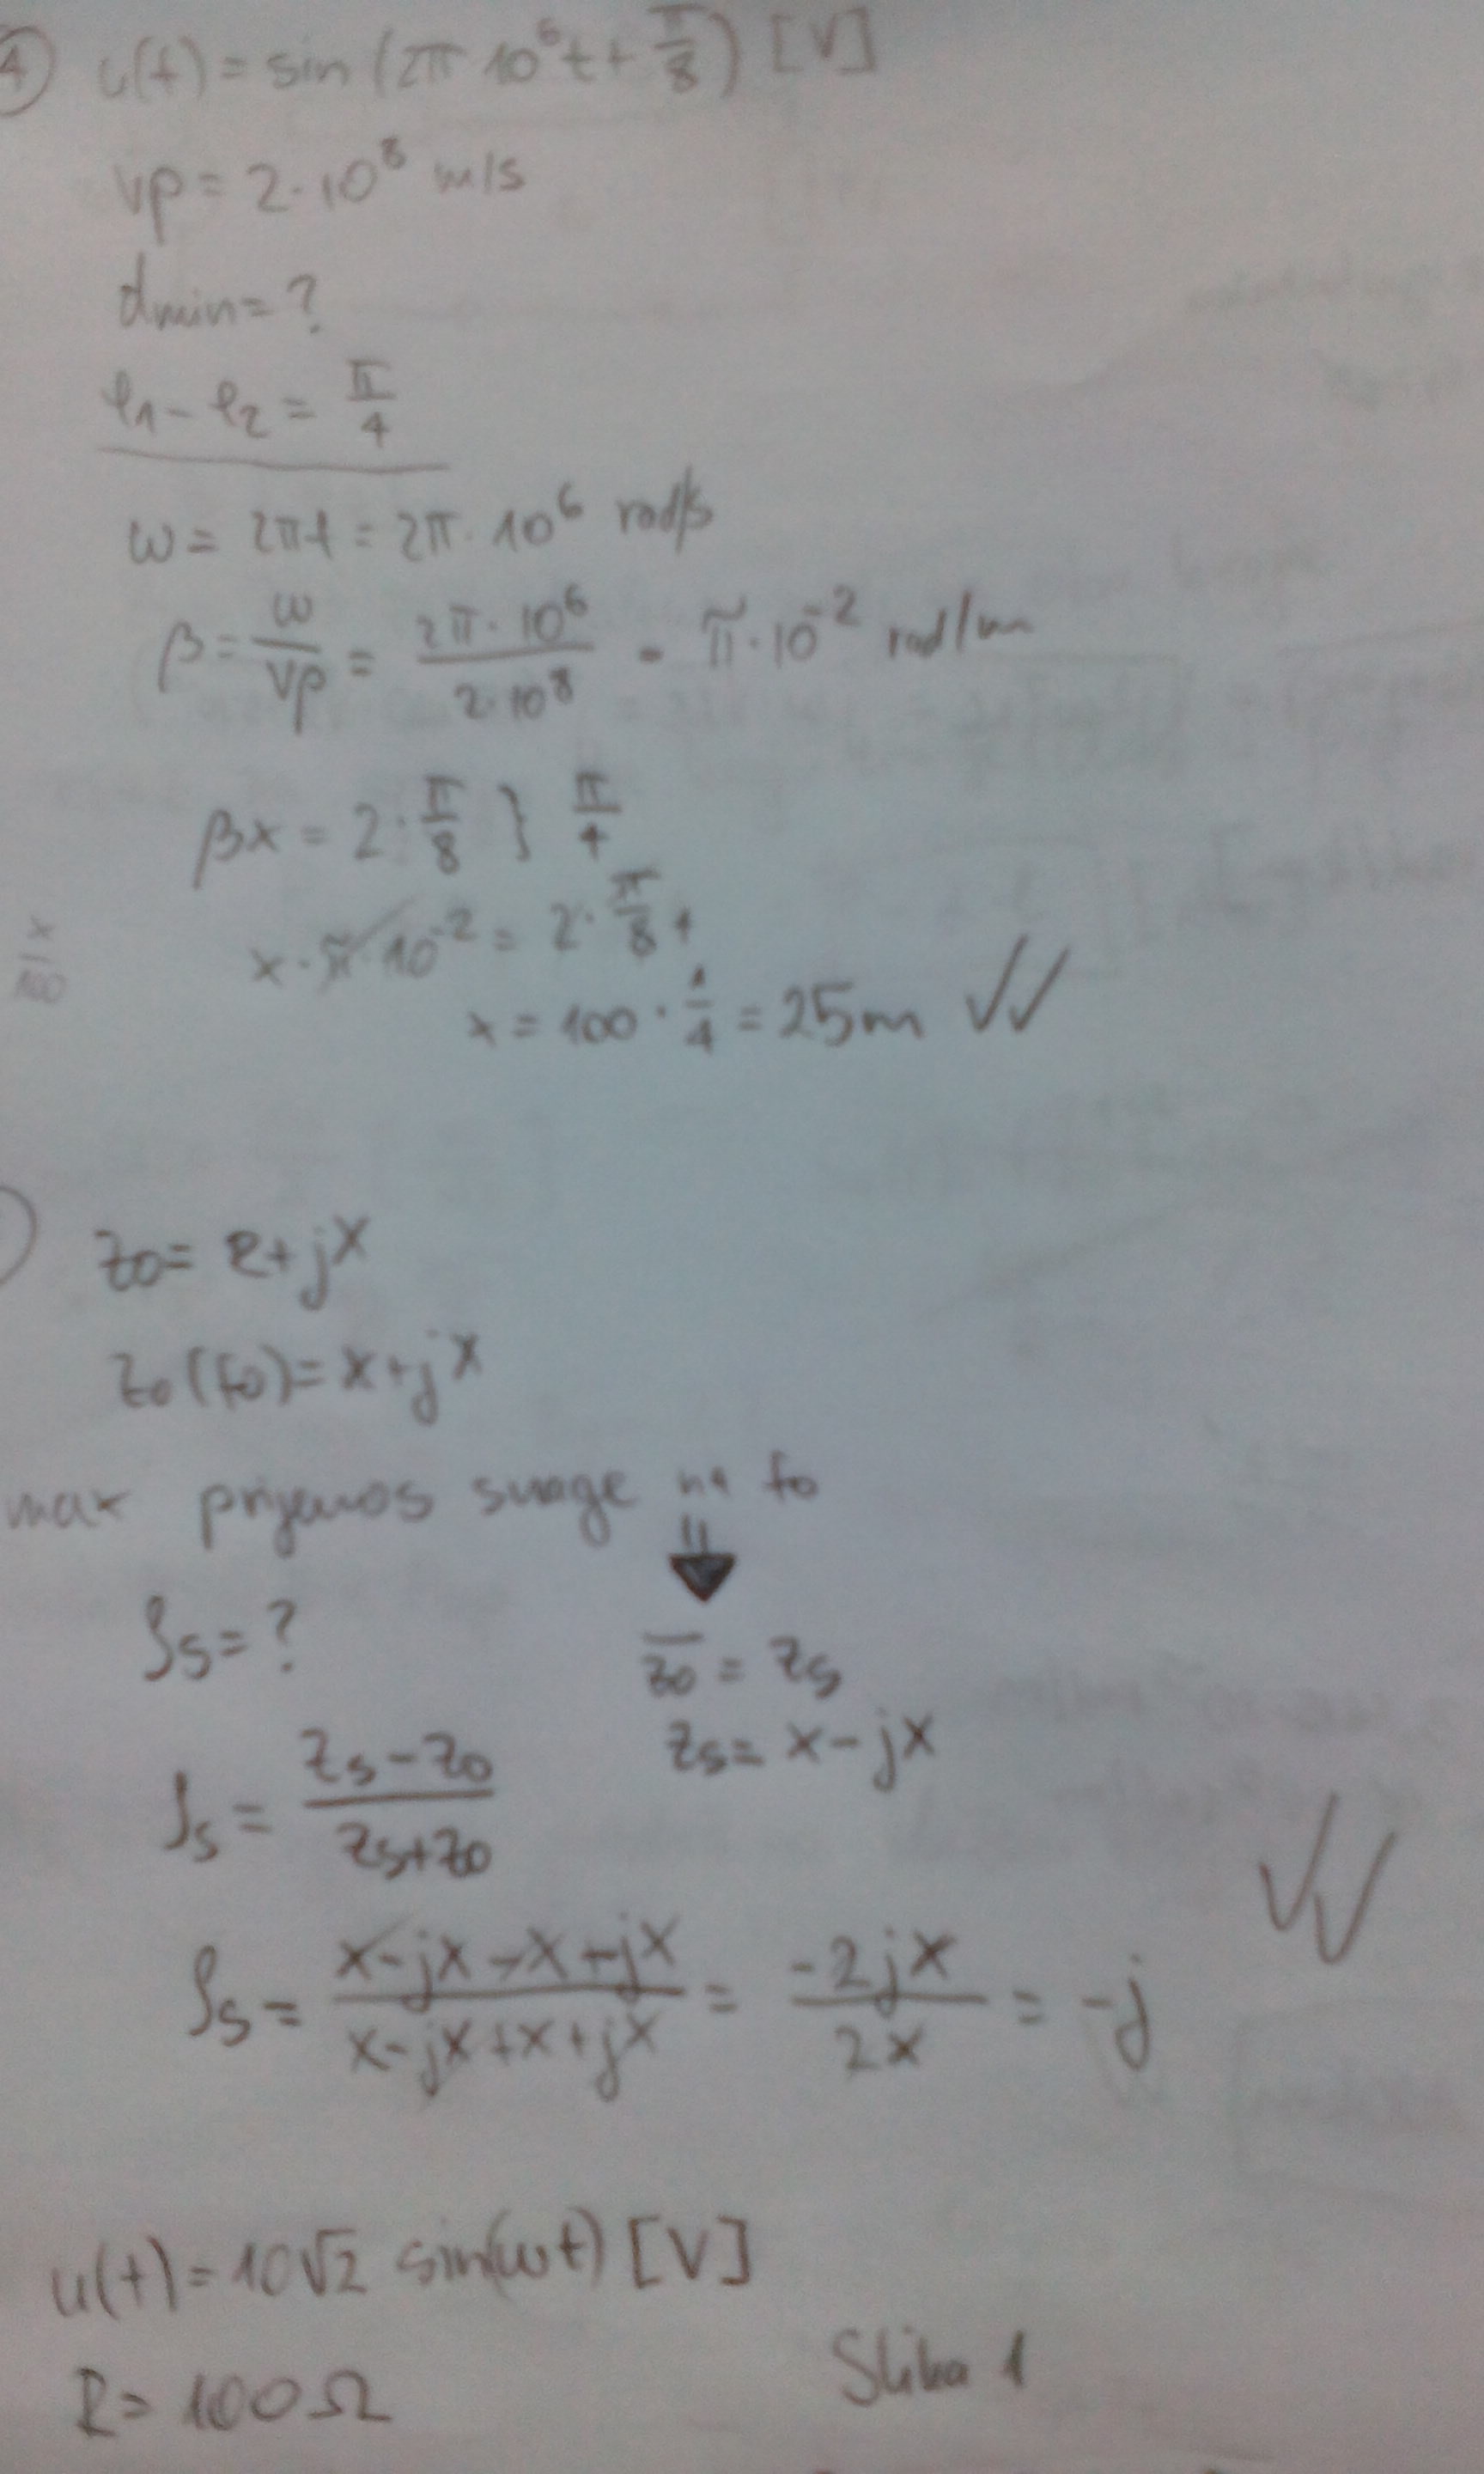 ④ u(t) = sin (2π 10⁶t + π/8) [V]
vp = 2·10⁸ m/s
dmin = ?
φ1 - φ2 = π/4
ω = 2πf = 2π·10⁶ rad/s
β = ω/vp = 2π·10⁶/2·10⁸ = π·10⁻² rad/m
βx = 2·π/8 } π/4
x·π·10⁻² = 2·π/8 4
x/100
x = 100·1/4 = 25m √√
) Z0 = R+jX
Z0(f0) = X+jX
max prijenos snage na f0
⇓
ρs = ?
Z̅0 = Zs
Zs = X-jX
ρs = Zs-Z0/Zs+Z0
ρs = X-jX-X-jX/X-jX+X+jX = -2jX/2X = -j √√
u(t) = 10√2 sin(ωt) [V]
R = 100Ω
Slika 1